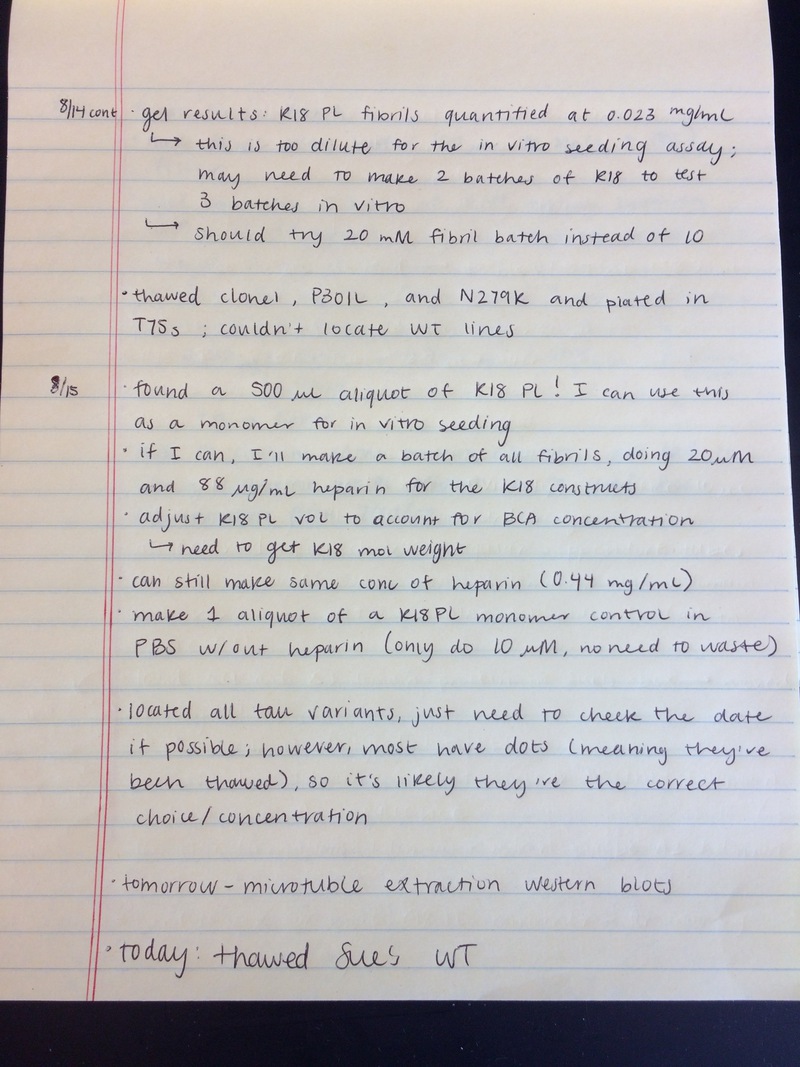 8/14 cont · gel results: K18 PL fibrils quantified at 0.023 mg/mL
↳ this is too dilute for the in vitro seeding assay;
may need to make 2 batches of K18 to test
3 batches in vitro
↳ should try 20 mM fibril batch instead of 10
· thawed clone1, P301L, and N279K and plated in
T75s; couldn't locate WT lines
8/15 · found a 500 µl aliquot of K18 PL! I can use this
as a monomer for in vitro seeding
· if I can, I'll make a batch of all fibrils, doing 20µM
and 88 µg/mL heparin for the K18 constructs
· adjust K18 PL vol to account for BCA concentration
↳ need to get K18 mol weight
· can still make same conc of heparin (0.44 mg/mL)
· make 1 aliquot of a K18PL monomer control in
PBS w/out heparin (only do 10 µM, no need to waste)
· located all tau variants, just need to check the date
if possible; however, most have dots (meaning they've
been thawed), so it's likely they're the correct
choice/concentration
· tomorrow - microtuble extraction western blots
· today: thawed Sue's WT